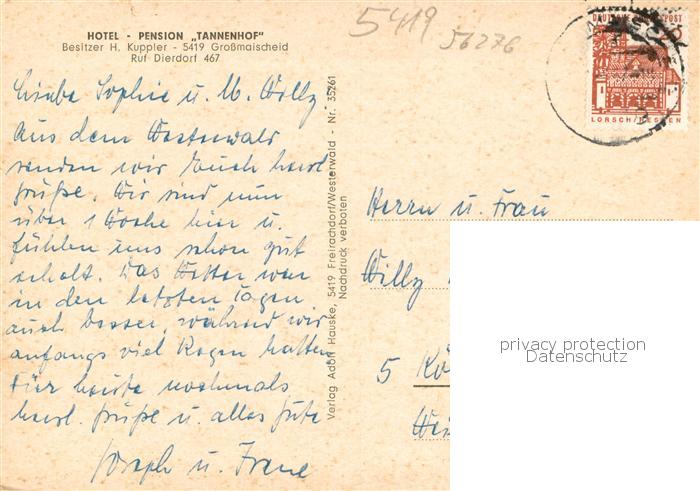 HOTEL - PENSION „TANNENHOF"
Besitzer H. Kuppler - 5419 Großmaischeid
Ruf Dierdorf 467
5419
56276
DEUTSCHE BUNDESPOST
20
LORSCH/HESSEN
Liebe Sophie u. Willy
Aus dem Westerwald
senden wir Euch herzl
Grüße. Wir sind nun
über 1 Woche hier u.
fühlen uns schon gut
erholt. Das Wetter war
in den letzten Tagen
auch besser, während wir
anfangs viel Regen hatten
Für heute nochmals
herzl. Grüße u. alles Gute
Joseph u. Irene
Verlag Adolf Hauske, 5419 Freirachdorf/Westerwald - Nr. 35261
Nachdruck verboten
Herrn u. Frau
Willy
5 Kö
privacy protection
Datenschutz